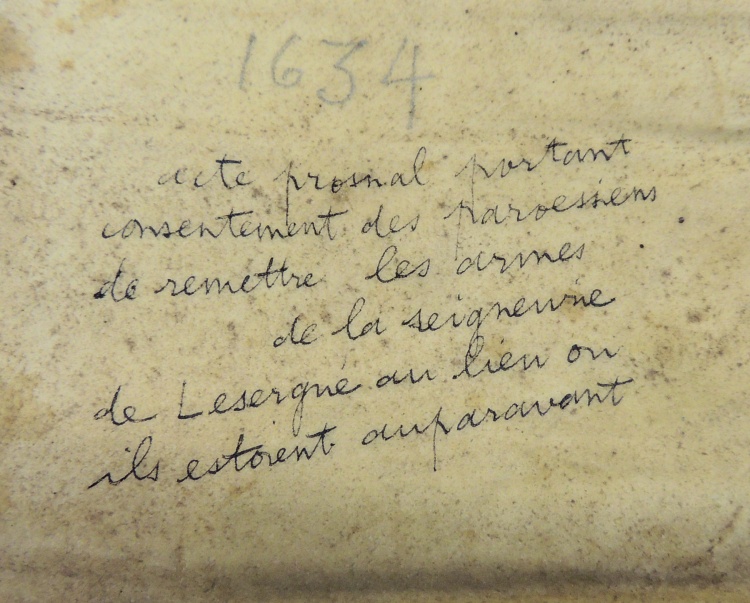 1634
acte prosnal portant
consentement des paroessiens
de remettre les armes
de la seigneurie
de Lesergué au lieu ou
ils estoient auparavant